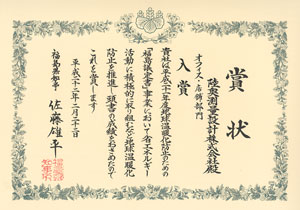 賞状
陸奥測量設計株式会社殿
オフィス・店舗部門
入賞
貴社は平成二十二年度地球温暖化防止のための
「福島議定書」事業において省エネルギー
活動に積極的に取り組むなど地球温暖化
防止を推進し頭書の成績をおさめたので
これを賞します
平成二十三年二月二十三日
福島県知事 佐藤雄平